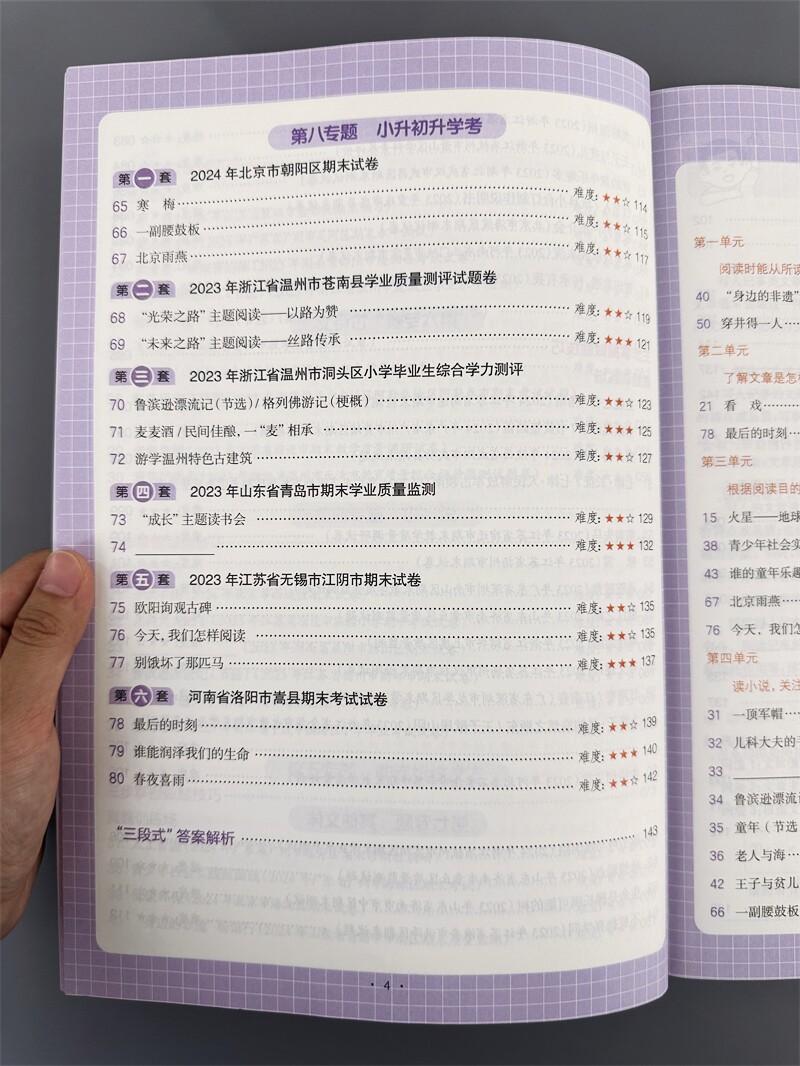 第八专题 小升初升学考
第一套 2024年北京市朝阳区期末试卷
65 寒 梅 难度:★★☆ 114
66 一副腰鼓板 难度:★★☆ 115
67 北京雨燕 难度:★★☆ 117
第二套 2023年浙江省温州市苍南县学业质量测评试题卷
68 “光荣之路”主题阅读——以路为赞 难度:★★☆ 119
69 “未来之路”主题阅读——丝路传承 难度:★★★ 121
第三套 2023年浙江省温州市洞头区小学毕业生综合学力测评
70 鲁滨逊漂流记(节选)/格列佛游记(梗概) 难度:★★☆ 123
71 麦麦酒/民间佳酿,一“麦”相承 难度:★★★ 125
72 游学温州特色古建筑 难度:★★☆ 127
第四套 2023年山东省青岛市期末学业质量监测
73 “成长”主题读书会 难度:★★☆ 129
74 难度:★★★ 132
第五套 2023年江苏省无锡市江阴市期末试卷
75 欧阳询观古碑 难度:★★☆ 135
76 今天,我们怎样阅读 难度:★★☆ 135
77 别饿坏了那匹马 难度:★★★ 137
第六套 河南省洛阳市嵩县期末考试试卷
78 最后的时刻 难度:★★☆ 139
79 谁能润泽我们的生命 难度:★★★ 140
80 春夜喜雨 难度:★★☆ 142
“三段式”答案解析 143
· 4 ·
第一单元
阅读时能从所读
40 “身边的非遗”
50 穿井得一人
第二单元
了解文章是怎
21 看 戏
78 最后的时刻
第三单元
根据阅读目的
15 火星——地球
38 青少年社会实
43 谁的童年乐趣
67 北京雨燕
76 今天,我们怎
第四单元
读小说,关注
31 一顶军帽
32 儿科大夫的
33
34 鲁滨逊漂流
35 童年(节选
36 老人与海
42 王子与贫儿
66 一副腰鼓板